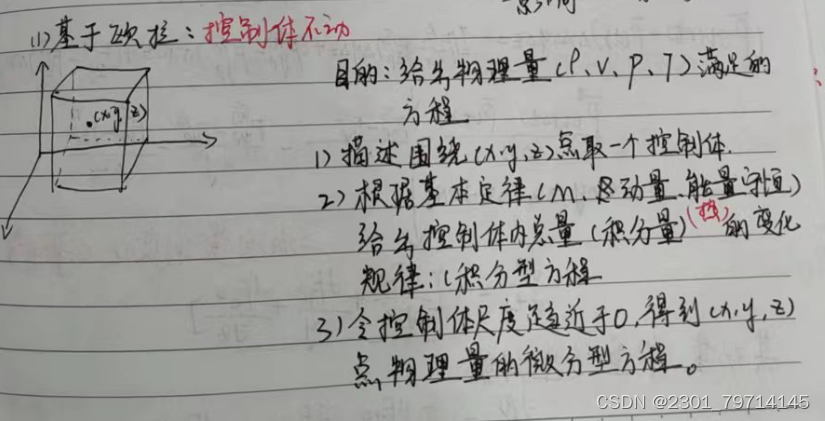 (1)基于欧拉：控制体不动
目的：给出物理量(ρ、v、p、T)满足的
方程.
(x,y,z)
1)描述围绕(x,y,z)点取一个控制体.
2)根据基本定律(m、动量、能量守恒)
给出控制体内总量(积分量)的变化
规律：(积分型方程
3)令控制体尺度趋近于0,得到(x,y,z)
点物理量的微分型方程。
CSDN @2301_79714145